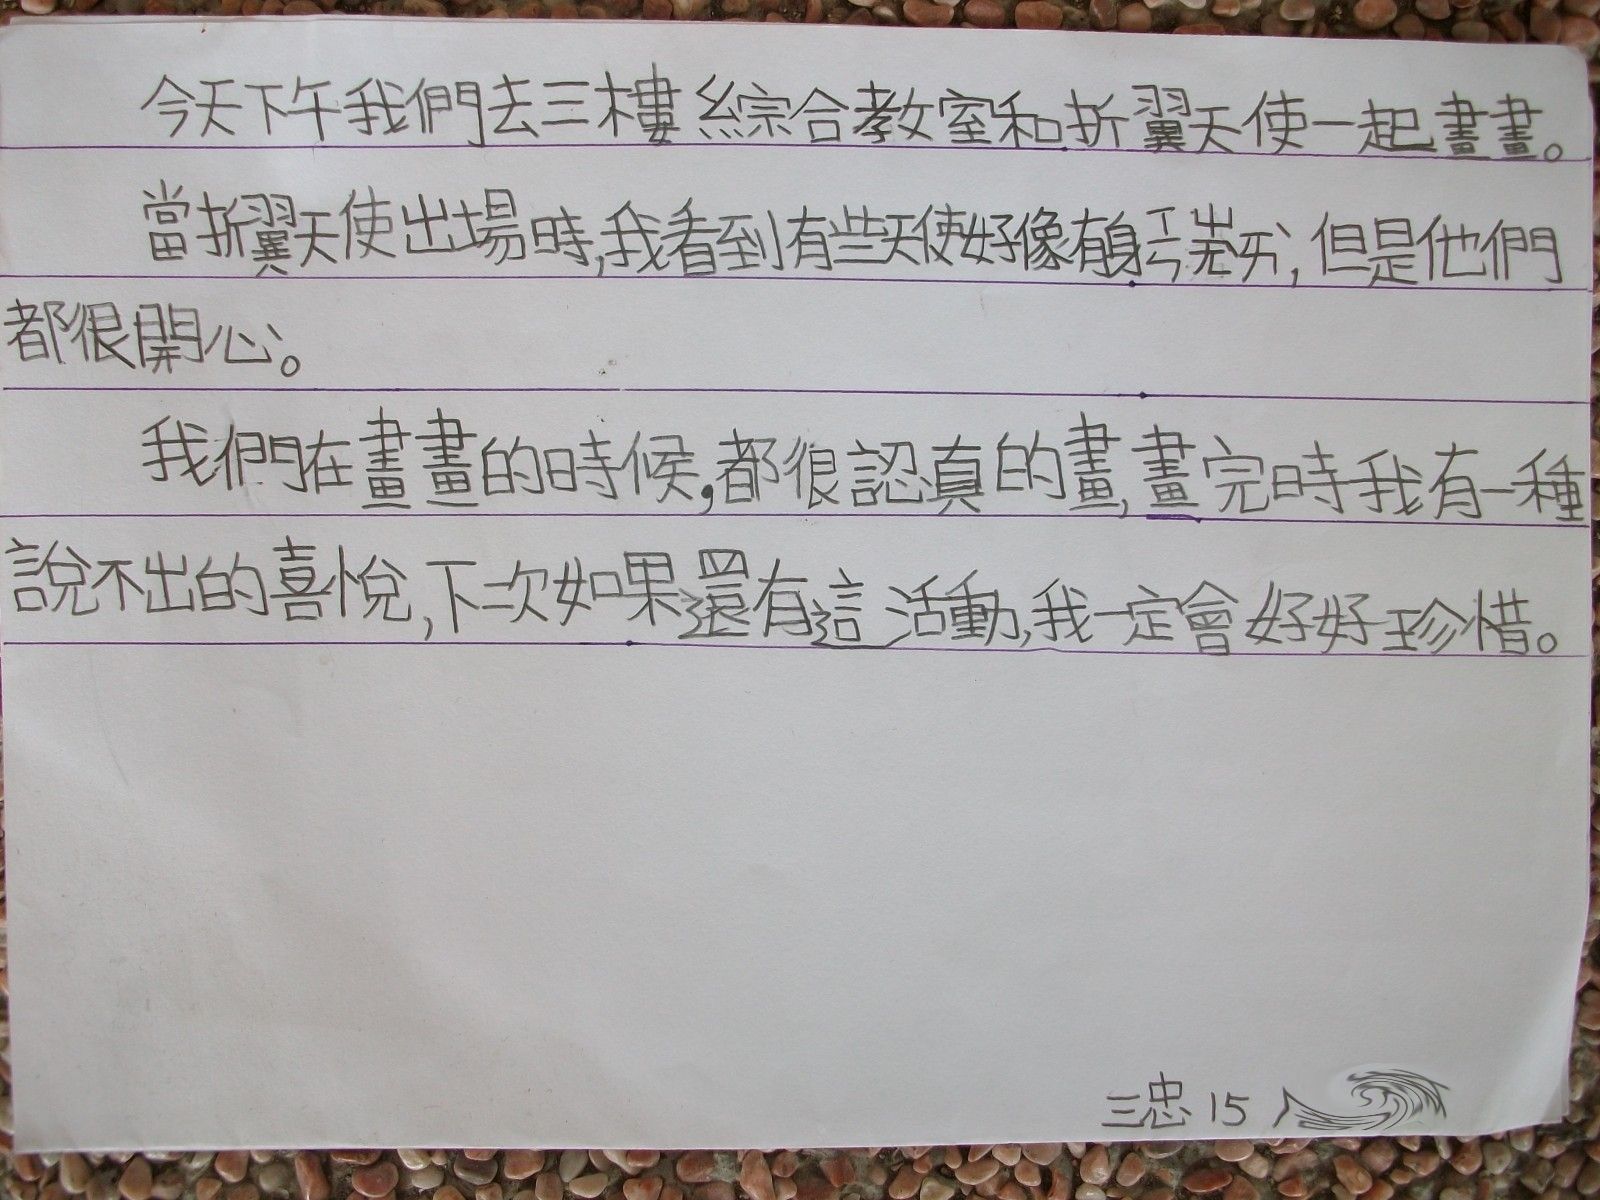 今天下午我們去三樓綜合教室和折翼天使一起畫畫。
當折翼天使出場時,我看到有些天使好像有身ㄒㄧㄣ ㄎㄨˋ,但是他們
都很開心。
我們在畫畫的時候,都很認真的畫,畫完時我有一種
說不出的喜悅,下次如果還有這活動,我一定會好好珍惜。
三忠 15